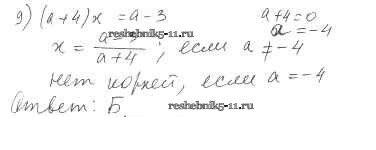 9) (a+4)x = a-3    a+4=0
a = -4
x = a-3/a+4; если a ≠ -4
нет корней, если a = -4
Ответ: Б.
reshebnik5-11.ru
reshebnik5-11.ru